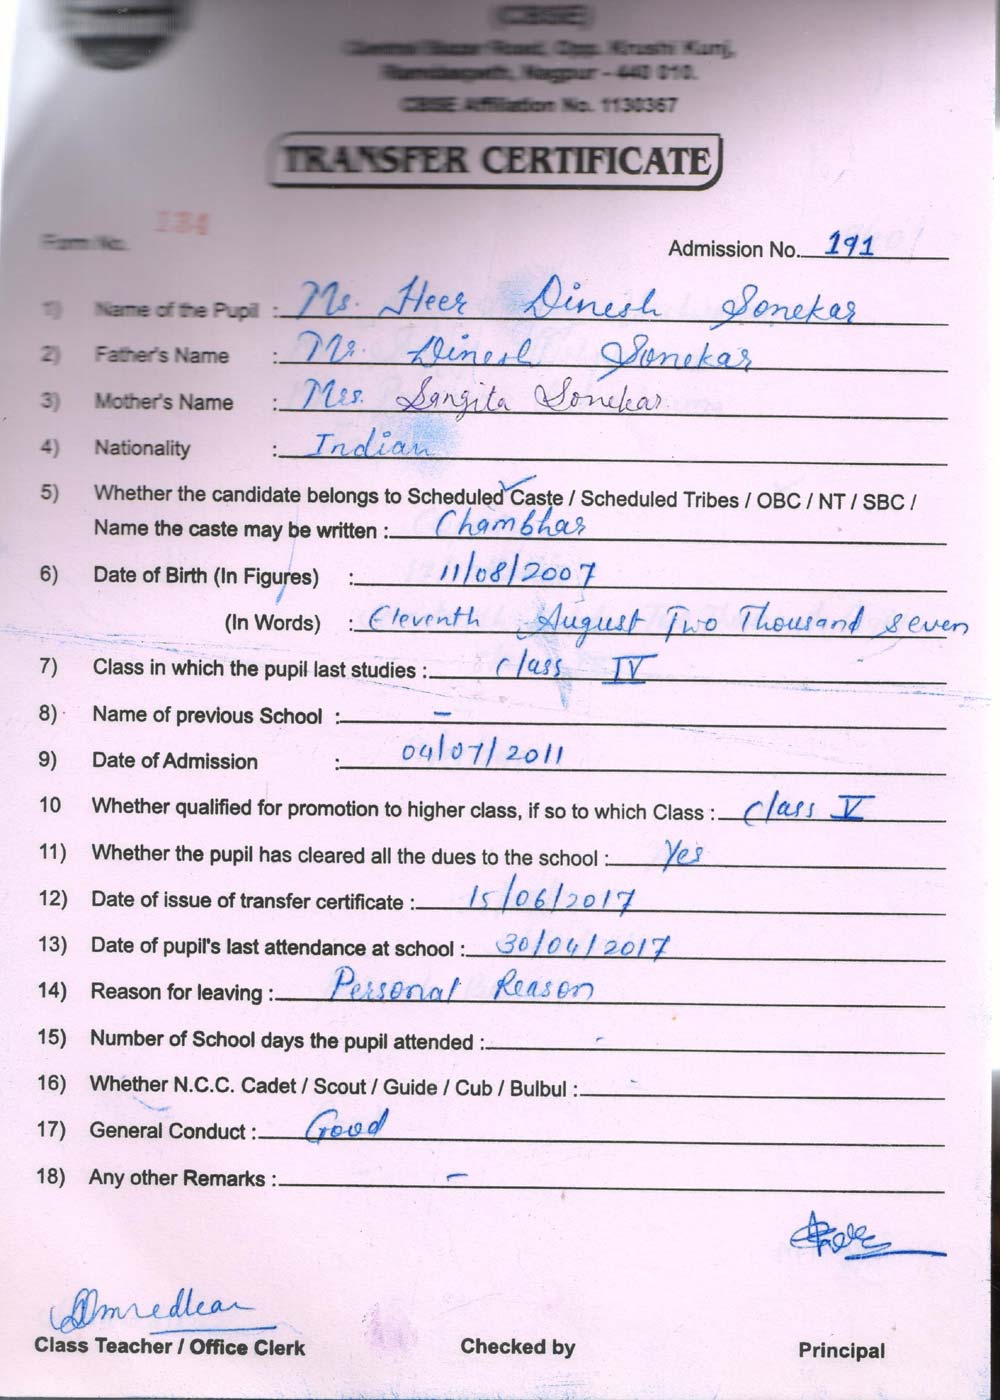 (CBSE)
Central Bazar Road, Opp. Krushi Kunj,
Ramdaspeth, Nagpur - 440 010.
CBSE Affiliation No. 1130367
TRANSFER CERTIFICATE
Form No. 134
Admission No. 191
1) Name of the Pupil : Ms. Heer Dinesh Sonekar
2) Father's Name : Mr. Dinesh Sonekar
3) Mother's Name : Mrs. Sangita Sonekar
4) Nationality : Indian
5) Whether the candidate belongs to Scheduled Caste / Scheduled Tribes / OBC / NT / SBC /
Name the caste may be written : Chambhar
6) Date of Birth (In Figures) : 11/08/2007
(In Words) : Eleventh August Two Thousand Seven
7) Class in which the pupil last studies : Class IV
8) Name of previous School : -
9) Date of Admission : 04/07/2011
10 Whether qualified for promotion to higher class, if so to which Class : Class V
11) Whether the pupil has cleared all the dues to the school : Yes
12) Date of issue of transfer certificate : 15/06/2017
13) Date of pupil's last attendance at school : 30/04/2017
14) Reason for leaving : Personal Reason
15) Number of School days the pupil attended : -
16) Whether N.C.C. Cadet / Scout / Guide / Cub / Bulbul : -
17) General Conduct : Good
18) Any other Remarks : -
Class Teacher / Office Clerk Checked by Principal